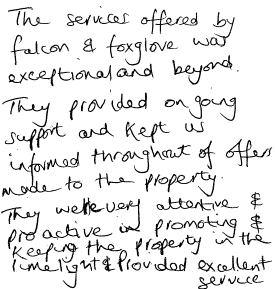 The services offered by
falcon & foxglove was
exceptional and beyond.
They provided ongoing
support and kept us
informed throughout of offers
made to the property.
They were very attentive &
proactive in promoting &
keeping the property in the
limelight & provided excellent
service